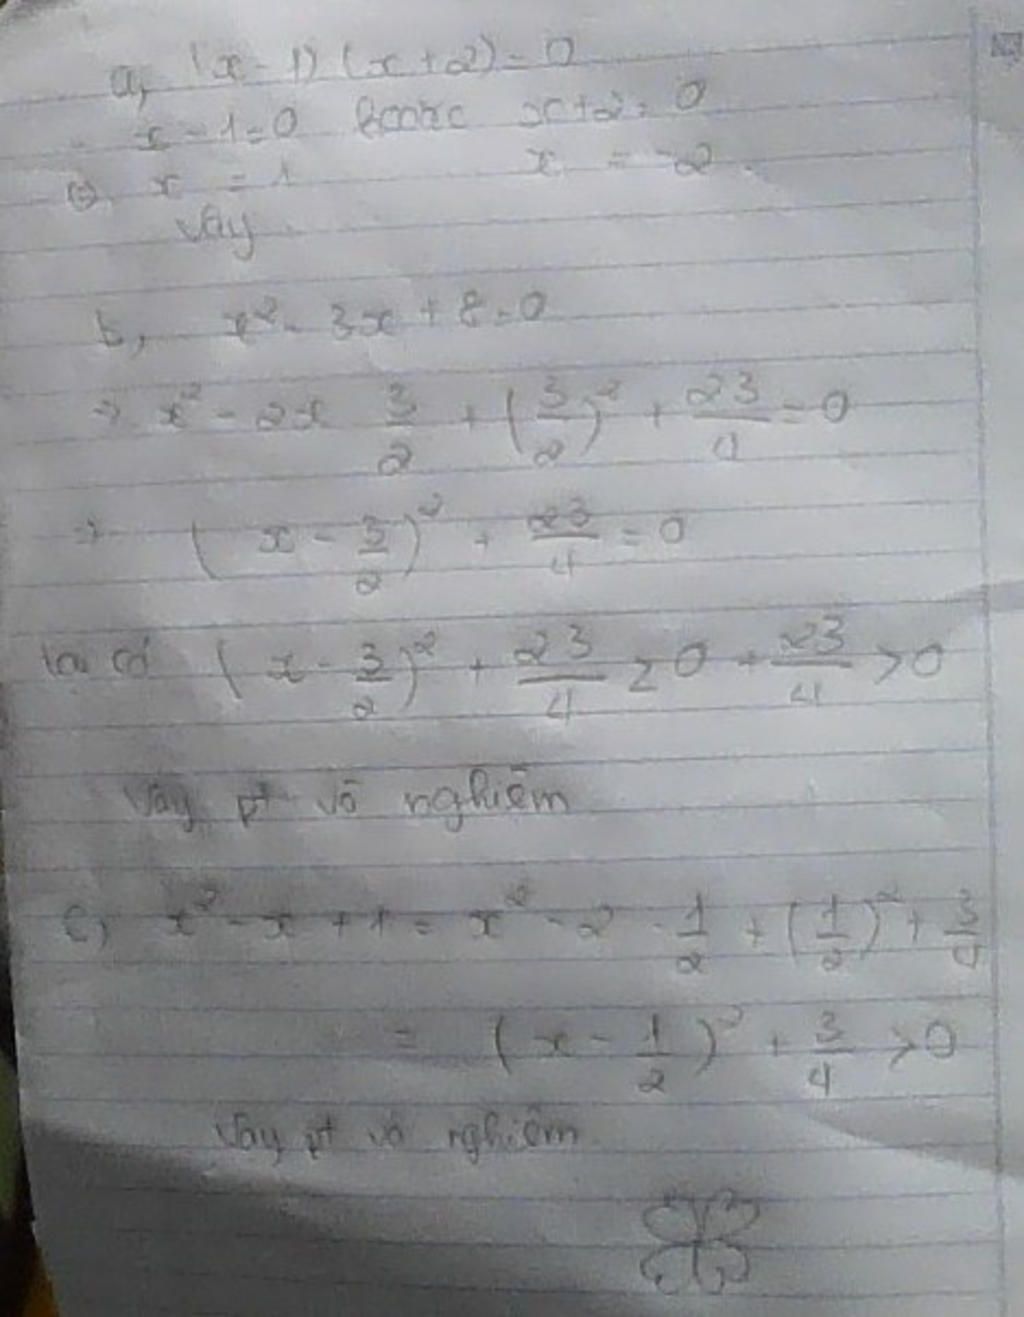 a, (x - 1) (x + 2) = 0
x - 1 = 0 hoặc x + 2 = 0
⇔ x = 1 x = -2
Vậy
b, x² - 3x + 8 = 0
→ x² - 2x 3/2 + (3/2)² + 23/4 = 0
→ (x - 3/2)² + 23/4 = 0
ta có (x - 3/2)² + 23/4 ≥ 0 + 23/4 > 0
Vậy pt vô nghiệm
c, x² - x + 1 = x² - 2 . 1/2 + (1/2)² + 3/4
= (x - 1/2)² + 3/4 > 0
Vậy pt vô nghiệm